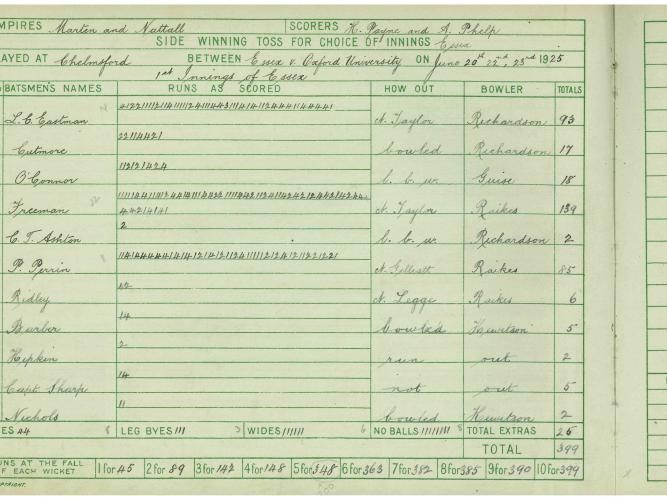 MPIRES Marten and Nattall SCORERS H. Payne and A. Phelp
SIDE WINNING TOSS FOR CHOICE OF INNINGS Essex
AYED AT Chelmsford BETWEEN Essex v. Oxford University ON June 20th 22nd, 23rd 1925
1st Innings of Essex
BATSMEN'S NAMES RUNS AS SCORED HOW OUT BOWLER TOTALS
L. C. Eastman ct. Taylor Richardson 93
Cutmore 22114421 bowled Richardson 17
O'Connor 112121424 l. b. w. Guise 18
Freeman 44214141 ct. Taylor Raikes 139
C. T. Ashton 2 l. b. w. Richardson 2
P. Perrin ct. Gilliatt Raikes 85
Ridley 42 ct. Legge Raikes 6
Barber 14 bowled Hewetson 5
Hipkin 2 run out 2
Capt. Sharp 14 not out 5
Nichols 11 bowled Hewetson 2
ES 44 8 LEG BYES 111 3 WIDES 111111 6 NO BALLS 11111111 8 TOTAL EXTRAS 25
TOTAL 399
UNS AT THE FALL OF EACH WICKET 1 for 45 2 for 89 3 for 142 4 for 148 5 for 348 6 for 363 7 for 382 8 for 385 9 for 390 10 for 399